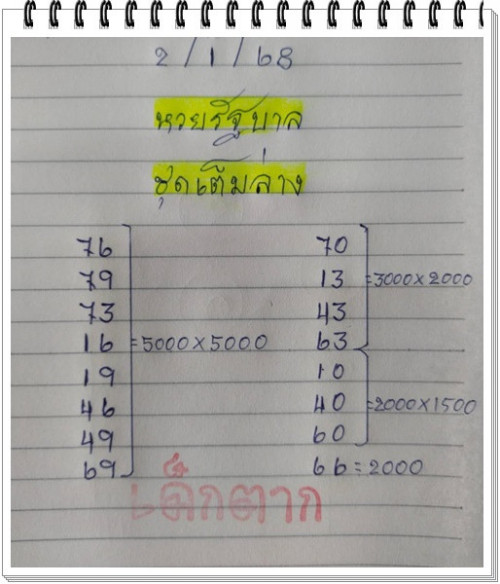 2/1/68
หวยรัฐบาล
ชุดเต็มล่าง
76
79
73
16 =5000×5000
19
46
49
69
70
13 =3000×2000
43
63
10
40 =2000×1500
60
66=2000
เด็กตาก